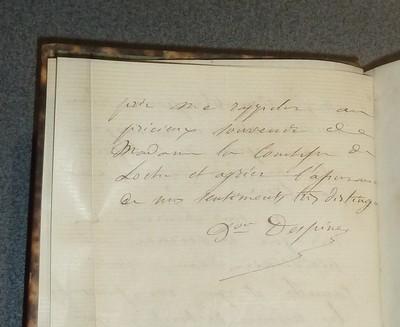 prie me rappeler au
précieux souvenir de
Madame la Comtesse de
Loche et agréer l'assurance
de mes sentements très disting
Dor Despine